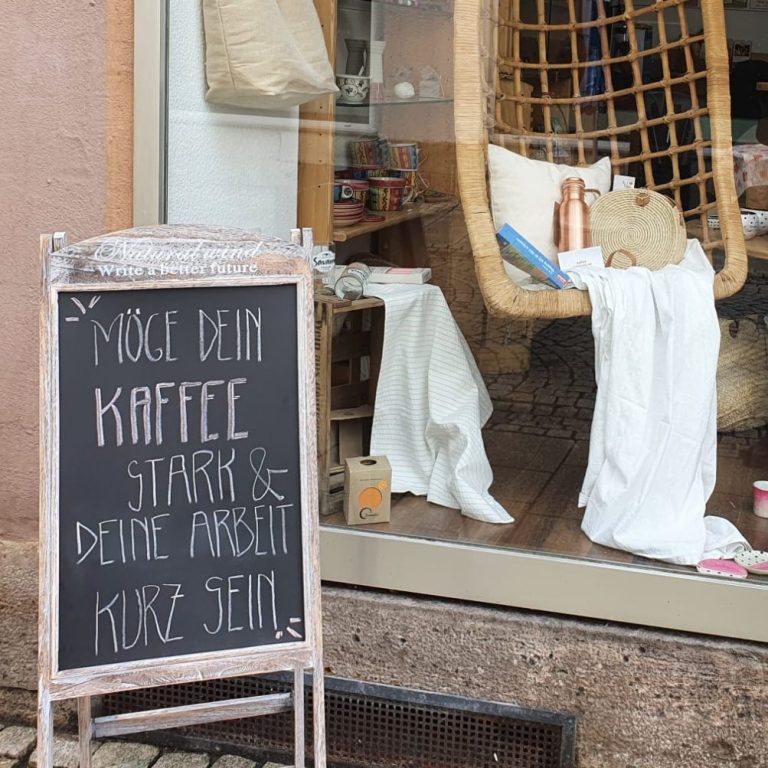 Natural wind
Write a better future
MÖGE DEIN
KAFFEE
STARK &
DEINE ARBEIT
KURZ SEIN